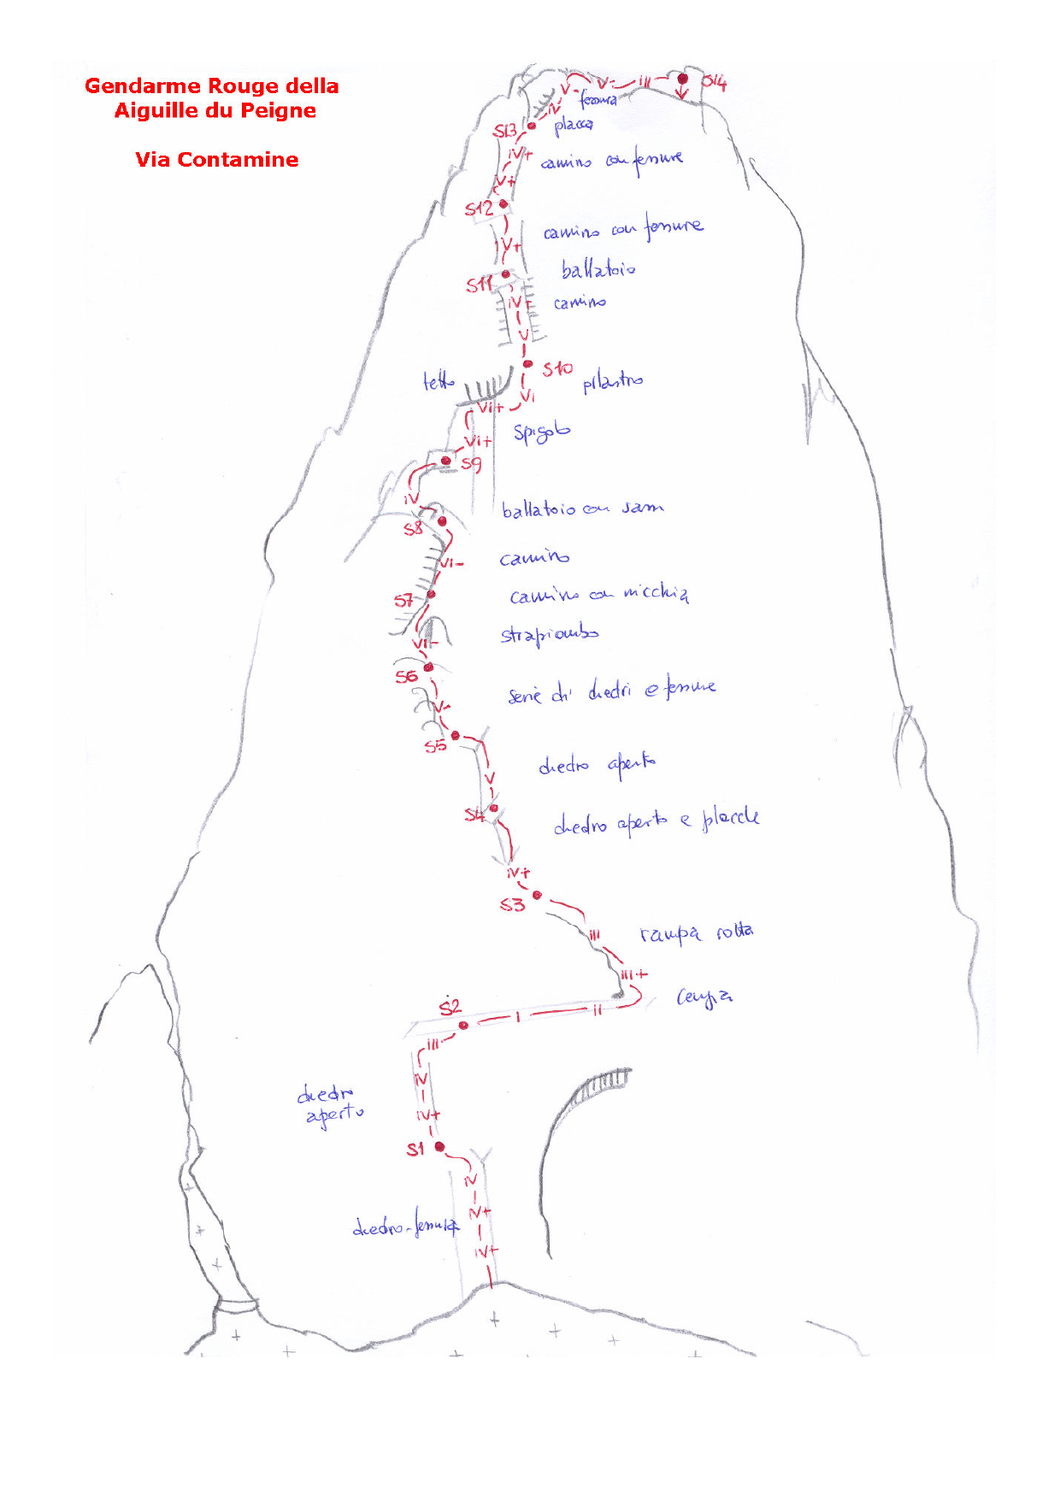 Gendarme Rouge della
Aiguille du Peigne
Via Contamine
V- V- III S14
IV fessura
S13 placca
IV+ camino con fessure
V+
S12
V+ camino con fessure
ballatoio
S11
IV+ camino
V
S10
tetto pilastro
VI
VI+
spigolo
VI+
S9
IV
ballatoio con sassi
S8
VI- camino
S7 camino con nicchia
strapiombo
VI-
S6
serie di diedri e fessure
V-
S5
diedro aperto
V
S4
diedro aperto e placche
IV+
S3
III rampa rotta
III+
cengia
S2
I II
III
IV
diedro
aperto
IV+
S1
IV
IV+
diedro-fessura
IV+